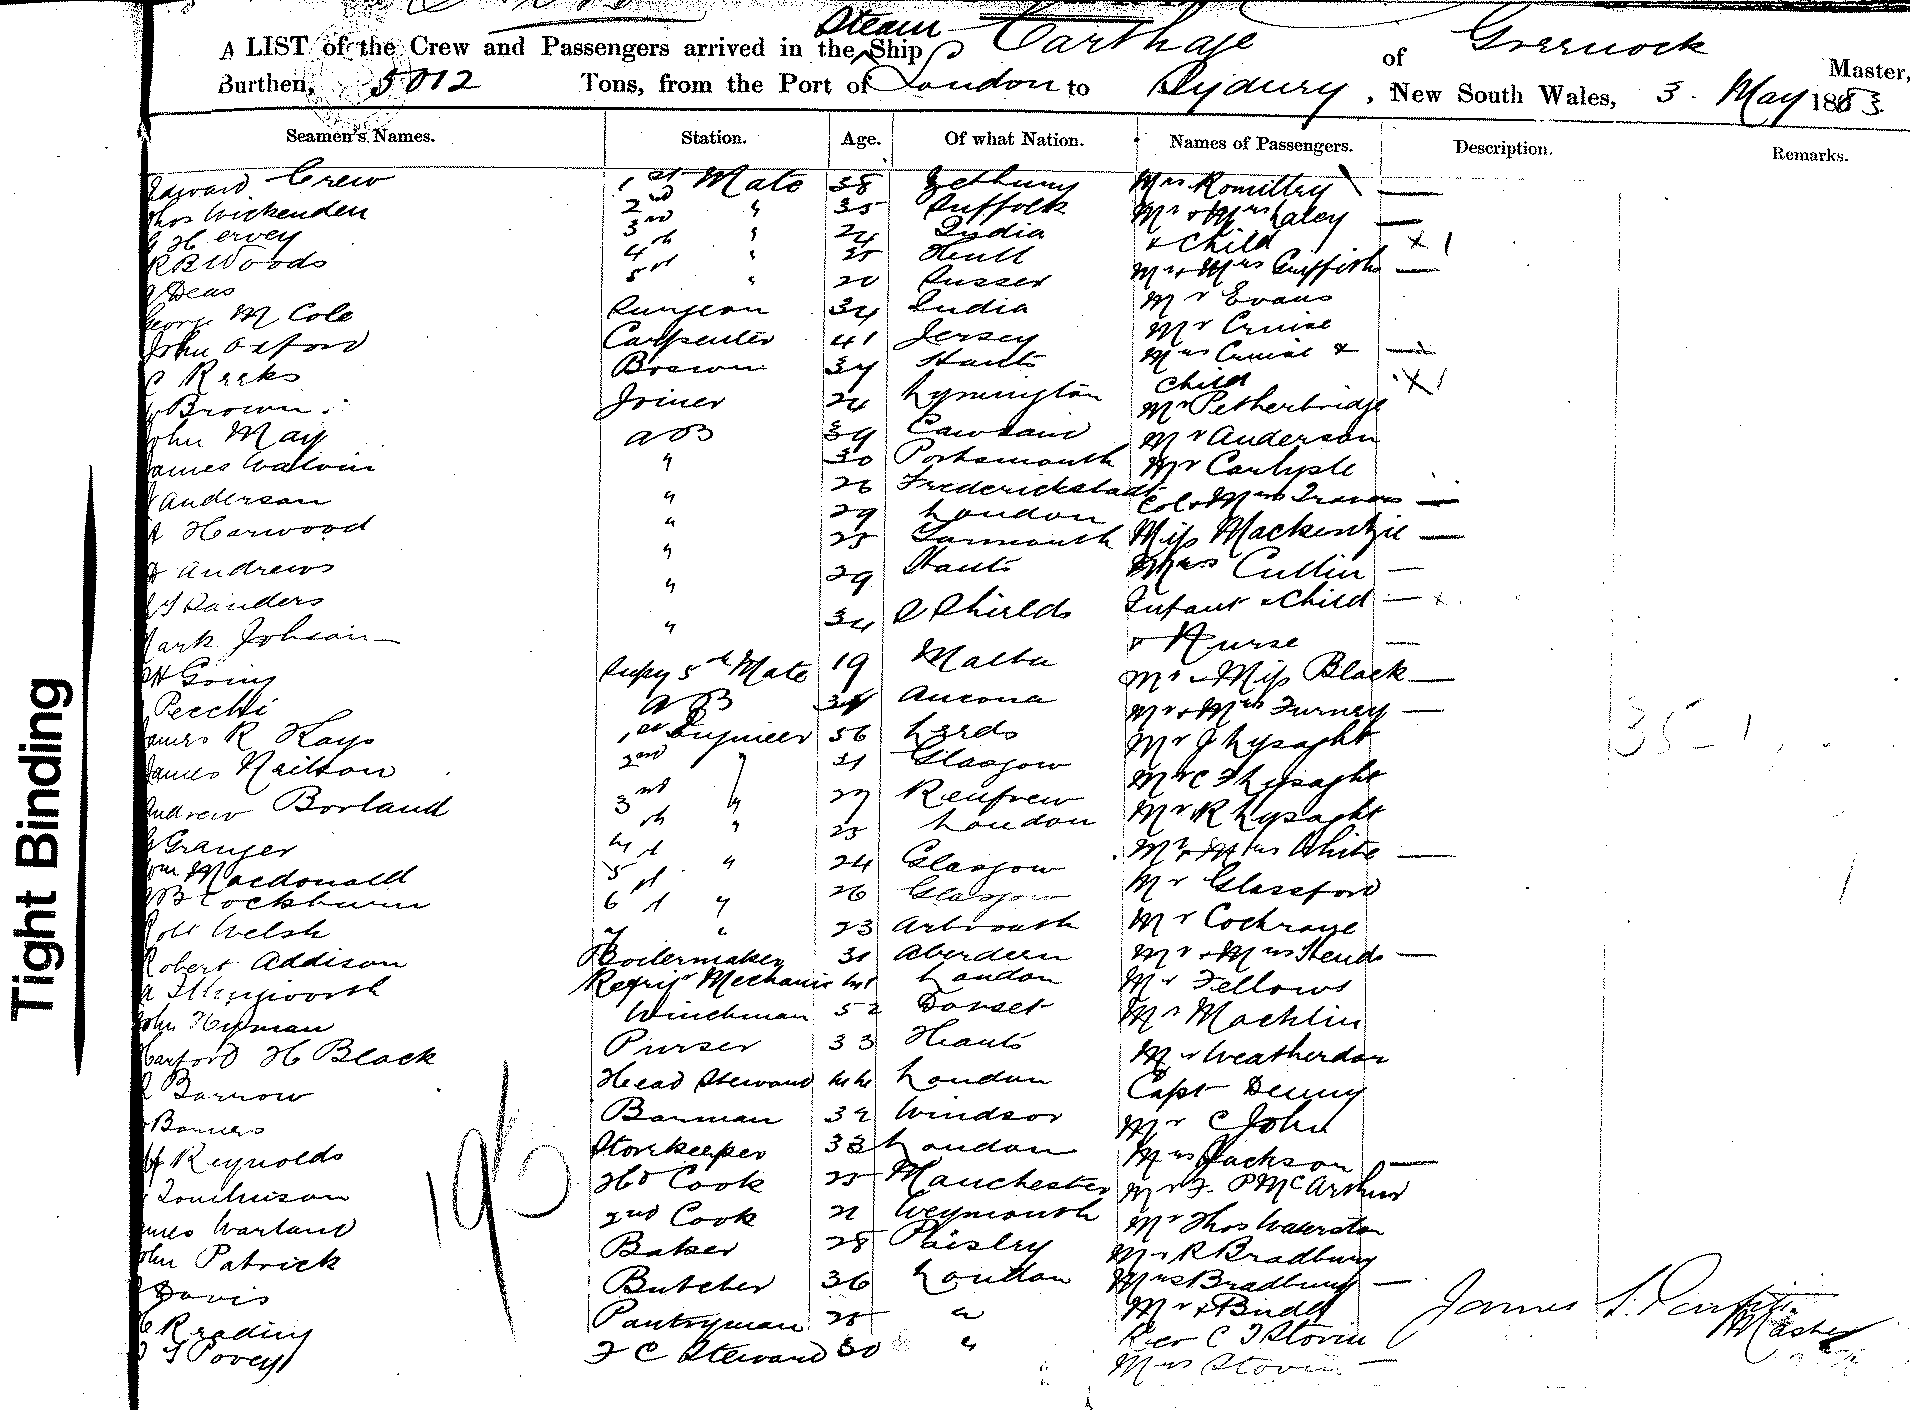 Steam
A LIST of the Crew and Passengers arrived in the Ship Carthage of Greenock
Burthen, 5012 Tons, from the Port of London to Sydney, New South Wales, 3. May 1883 Master,
Seamen's Names. Station. Age. Of what Nation. Names of Passengers. Description. Remarks.
Edward Crew 1st Mate 38 Mrs Romilley —
Thos Wickenden 2nd " 35 Suffolk Mr & Mrs Laley —
G Hervey 3rd " 24 India & Child X 1
R B Woods 4th " 25 Hull Mr & Mrs Griffiths —
Deas 5th " 20 Sussex
George M Cole Surgeon 34 India Mr Evans
John Oxford Carpenter 41 Jersey Mr Cruise
Reeks Bosun 34 Hants Mrs Cruise & —
Child X 1
Brown Joiner 24 Lymington Mr Petherbridge
John May AB 39 Cawsand Mr Anderson
James Walvin " 30 Portsmouth Mr Carlysle
Anderson " 26 Frederickstadt Col & Mrs Travers —
Harwood " 29 London Miss Mackenzie —
Andrews " 25 Yarmouth Mrs Cullin —
Sanders " 29 Hants Infant & Child —
Mark Johnson " 34 S Shields & Nurse —
Going Supy 5th Mate 19 Malta Mr & Miss Black —
Pecchi AB 34 Ancona Mr & Mrs Furney —
James R Kays 1st Engineer 56 Leeds Mr J Lysaght
James Neilson 2nd " 31 Glasgow Mr C F Lysaght
Andrew Borland 3rd " 27 Renfrew Mr R Lysaght
Granger 4th " 25 London Mr & Mrs White —
Wm Macdonald 5th " 24 Glasgow Mr Glassford
B Cockburn 6th " 26 Glasgow Mr Cochrane
Robt Welsh 7 " 23 Arbroath Mr & Mrs Hends —
Robert Addison Boilermaker 31 Aberdeen Mr Fellows
Illingworth Refrigr Mechanic 41 London Mr Machlin
John Hipman Winchman 52 Dorset Mr Weatherdon
Harford H Black Purser 33 Hants Capt Denny
Barrow Head Steward 44 London Mr C John
Bowers Barman 32 Windsor Mrs Jackson —
Reynolds Storekeeper 33 London Mr F. P McArthur
Tomlinson Hd Cook 25 Manchester Mr Thos Waterston
James Warland 2nd Cook 21 Weymouth Mr R Bradbury
John Patrick Baker 28 Paisley Mrs Bradbury —
Davis Butcher 36 London
Reading Pantryman 25 " Rev C F Stovin
Povey F C Steward 30 " Mrs Stovin —
195
135-1
James S. Master
Tight Binding